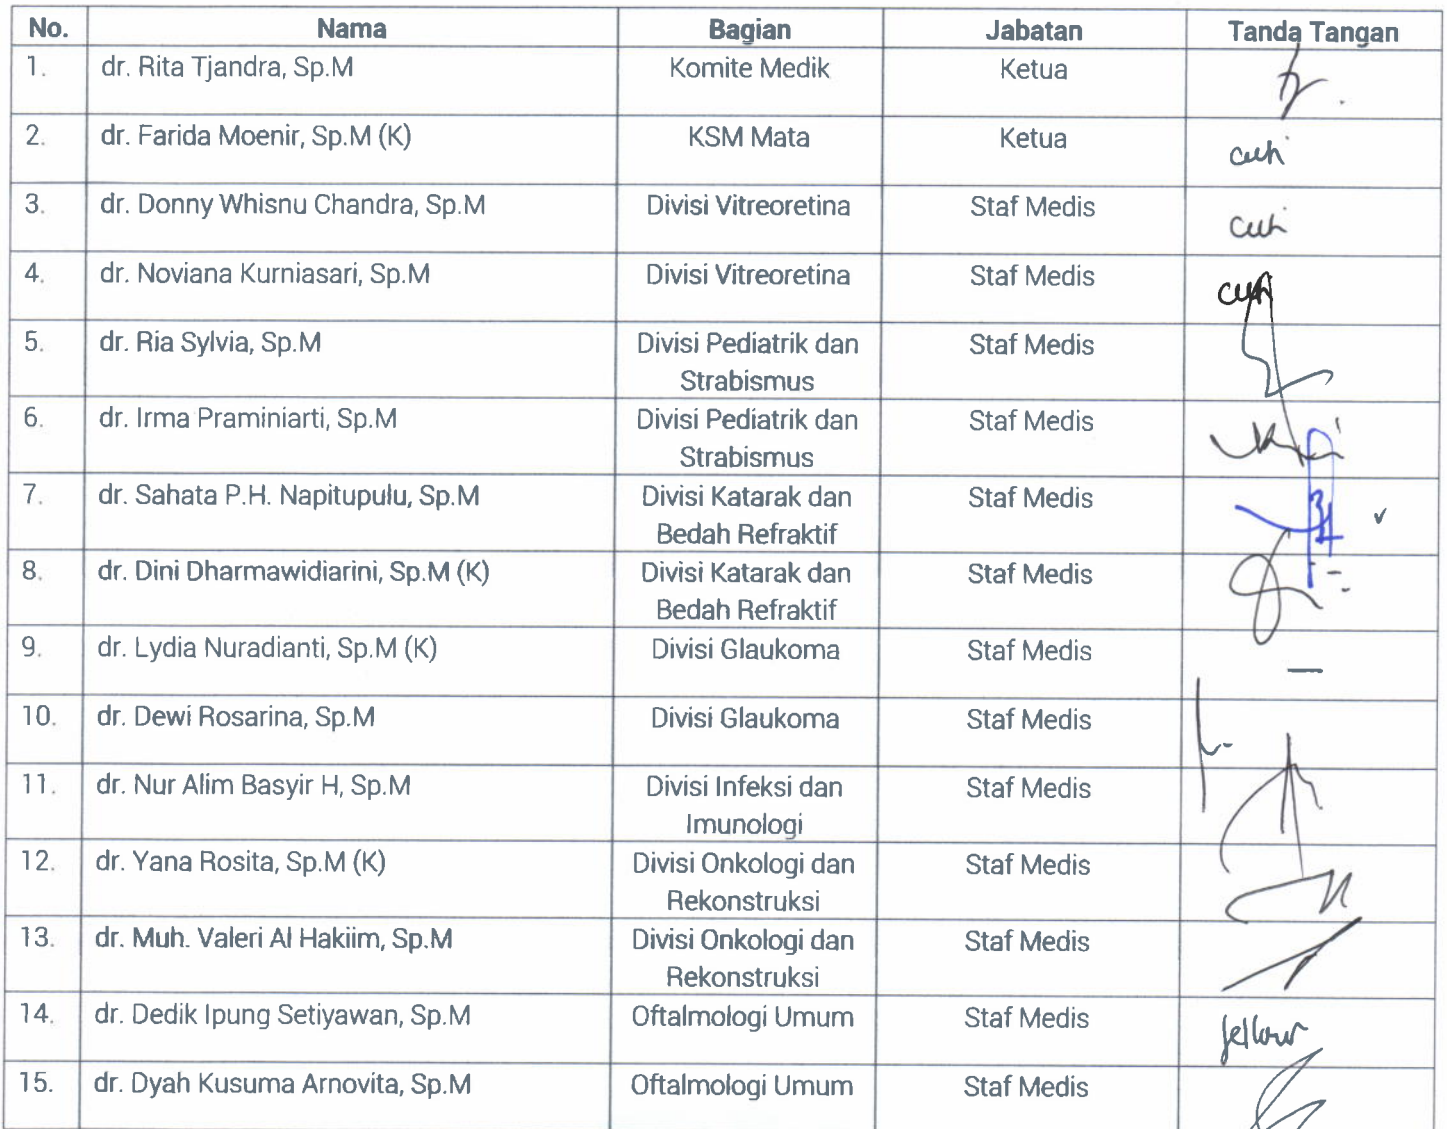 No. Nama Bagian Jabatan Tanda Tangan
1. dr. Rita Tjandra, Sp.M Komite Medik Ketua
2. dr. Farida Moenir, Sp.M (K) KSM Mata Ketua cuti
3. dr. Donny Whisnu Chandra, Sp.M Divisi Vitreoretina Staf Medis cuti
4. dr. Noviana Kurniasari, Sp.M Divisi Vitreoretina Staf Medis cuti
5. dr. Ria Sylvia, Sp.M Divisi Pediatrik dan Staf Medis
Strabismus
6. dr. Irma Praminiarti, Sp.M Divisi Pediatrik dan Staf Medis
Strabismus
7. dr. Sahata P.H. Napitupulu, Sp.M Divisi Katarak dan Staf Medis
Bedah Refraktif
8. dr. Dini Dharmawidiarini, Sp.M (K) Divisi Katarak dan Staf Medis
Bedah Refraktif
9. dr. Lydia Nuradianti, Sp.M (K) Divisi Glaukoma Staf Medis —
10. dr. Dewi Rosarina, Sp.M Divisi Glaukoma Staf Medis
11. dr. Nur Alim Basyir H, Sp.M Divisi Infeksi dan Staf Medis
Imunologi
12. dr. Yana Rosita, Sp.M (K) Divisi Onkologi dan Staf Medis
Rekonstruksi
13. dr. Muh. Valeri Al Hakiim, Sp.M Divisi Onkologi dan Staf Medis
Rekonstruksi
14. dr. Dedik Ipung Setiyawan, Sp.M Oftalmologi Umum Staf Medis fellow
15. dr. Dyah Kusuma Arnovita, Sp.M Oftalmologi Umum Staf Medis